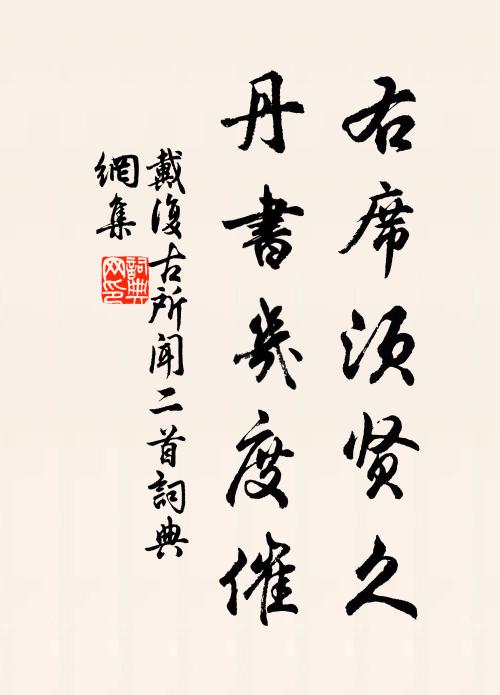 右席须贤久
丹書幾度催
戴復古所聞二首詞典
網集
詞典
网印